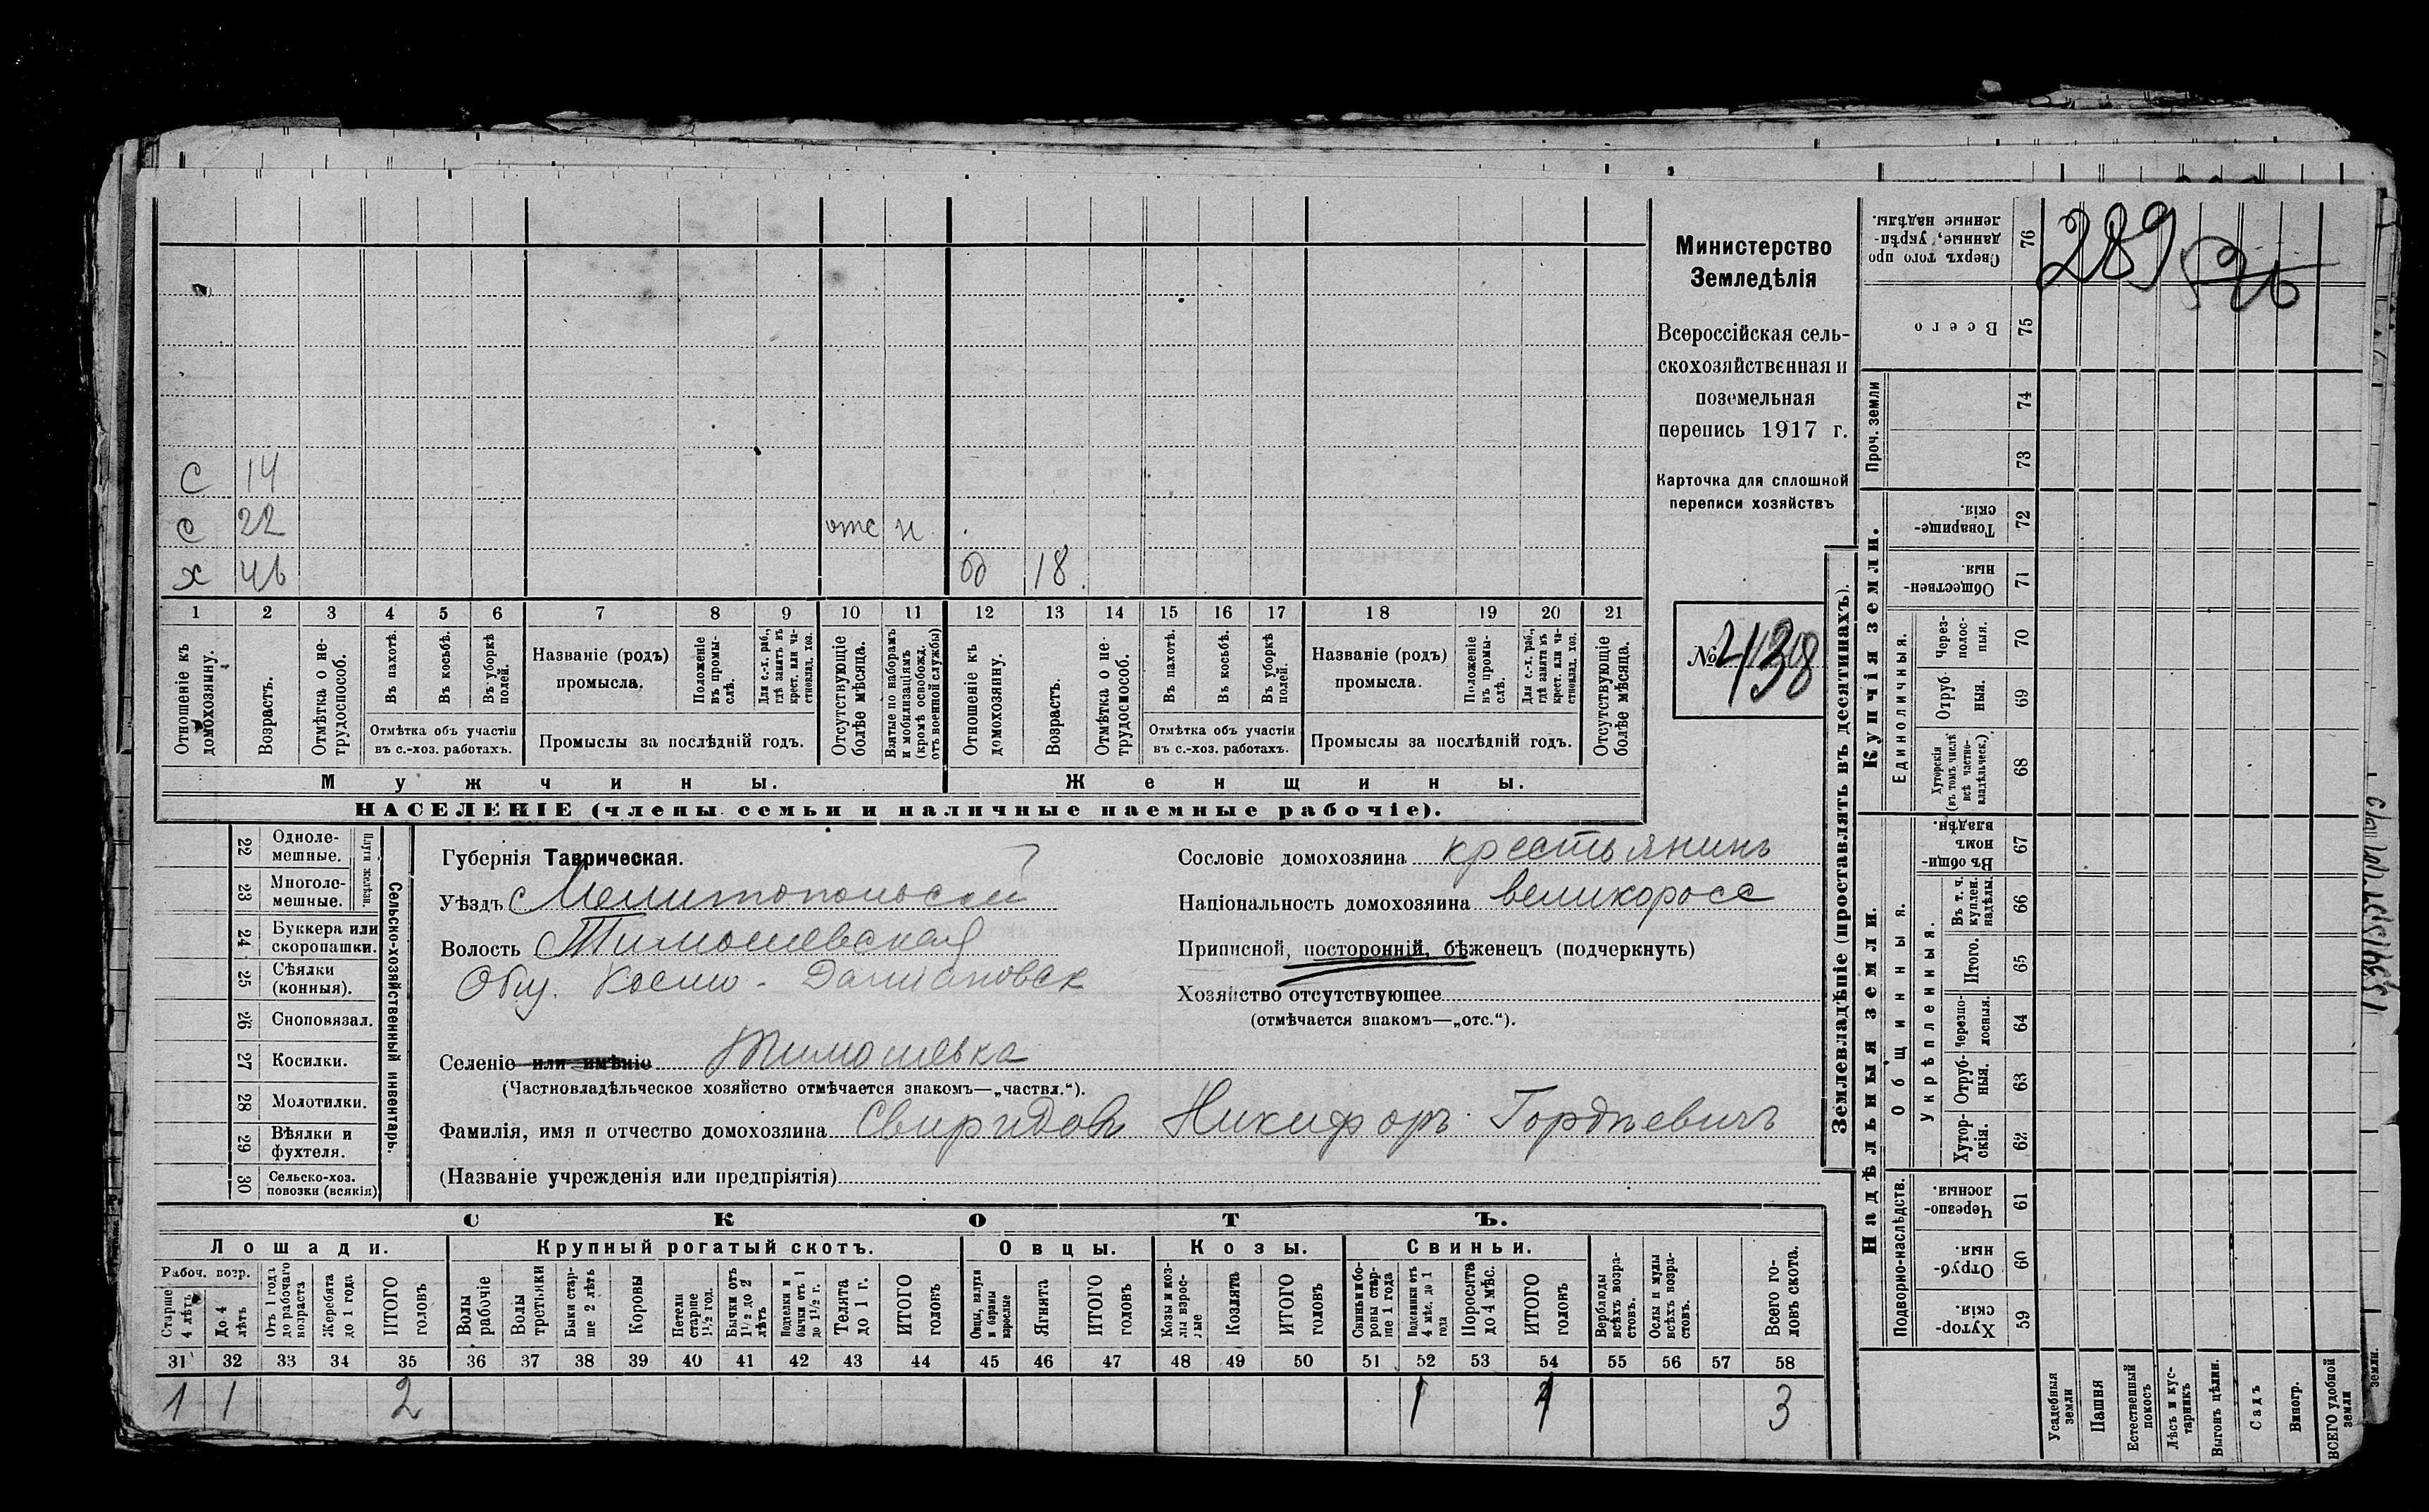 с 14
с 22 отс н
х 46 д 18
1 2 3 4 5 6 7 8 9 10 11 12 13 14 15 16 17 18 19 20 21
Отношеніе къ домохозяину.
Возрастъ.
Отмѣтка о не-трудоспособ.
Въ пахотѣ.
Въ косьбѣ.
Въ уборкѣ полей.
Отмѣтка объ участіи
въ с.-хоз. работахъ.
Названіе (родъ)
промысла.
Положеніе въ промы-слѣ.
Для с.-х. раб., гдѣ занятъ въ крест. или ча-стновлад. хоз.
Промыслы за послѣдній годъ.
Отсутствующіе болѣе мѣсяца.
Взятые по наборамъ и мобилизаціямъ (кромѣ освобожд. отъ военной службы)
Отношеніе къ домохозяину.
Возрастъ.
Отмѣтка о не-трудоспособ.
Въ пахотѣ.
Въ косьбѣ.
Въ уборкѣ полей.
Отмѣтка объ участіи
въ с.-хоз. работахъ.
Названіе (родъ)
промысла.
Положеніе въ промы-слѣ.
Для с.-х. раб., гдѣ занята въ крест. или ча-стновлад. хоз.
Промыслы за послѣдній годъ.
Отсутствующіе болѣе мѣсяца.
Мужчины. Женщины.
НАСЕЛЕНІЕ (члены семьи и наличные наемные рабочіе).
Министерство
Земледѣлія
Всероссійская сель-
скохозяйственная и
поземельная
перепись 1917 г.
Карточка для сплошной
переписи хозяйствъ
№ 438
22 Одноле-мешные.
23 Многоле-мешные.
Плуги желѣзн.
24 Буккера или скоропашки.
25 Сѣялки (конныя).
26 Сноповязал.
27 Косилки.
28 Молотилки.
29 Вѣялки и фухтеля.
30 Сельско-хоз. повозки (всякія)
Сельско-хозяйственный инвентарь.
Губернія Таврическая.
Уѣздъ Мелитопольский
Волость Тимошевская
Общ. Космо-Дамиановск
Селеніе или имѣніе Тимошевка
(Частновладѣльческое хозяйство отмѣчается знакомъ—„частвл.“).
Фамилія, имя и отчество домохозяина Свиридовъ Никифоръ Гордѣевичъ
(Названіе учрежденія или предпріятія)
Сословіе домохозяина крестьянинъ
Національность домохозяина великоросс
Приписной, посторонній, бѣженецъ (подчеркнуть)
Хозяйство отсутствующее
(отмѣчается знакомъ—„отс.“).
СКОТЪ.
Лошади. Крупный рогатый скотъ. Овцы. Козы. Свиньи.
Рабоч. возр.
Старше 4 лѣтъ
До 4 лѣтъ
Отъ 1 года до рабочаго возраста
Жеребята до 1 года
ИТОГО головъ
Волы рабочіе
Волы третьяки
Быки стар-ше 2 лѣтъ
Коровы
Нетели старше 1½ год.
Бычки отъ 1½ до 2 лѣтъ
Подтелки и бычки отъ 1 до 1½ г.
Телята до 1 г.
ИТОГО головъ
Овцы, валухи и бараны взрослые
Ягнята
ИТОГО головъ
Козы и коз-лы взрос-лые
Козлята
ИТОГО головъ
Свиньи и бо-ровы стар-ше 1 года
Подсвинки отъ 4 мѣс. до 1 года
Поросята до 4 мѣс.
ИТОГО головъ
Верблюды всѣхъ возра-стовъ.
Ослы и мулы всѣхъ возра-стовъ.
Всего го-ловъ скота.
31 32 33 34 35 36 37 38 39 40 41 42 43 44 45 46 47 48 49 50 51 52 53 54 55 56 57 58
1 1 2 1 1 3
Землевладѣніе (проставлять въ десятинахъ).
Купчія земли.
Надѣльныя земли.
76 Сверхъ того про данные, укрѣп-ленные надѣлы.
289
75 Всего
Проч. земли
74
73
72 Товарище-скія.
71 Обществен-ныя.
Единоличныя.
70 Через-полос-ныя.
69 Отруб-ныя.
68 Хуторскія (въ томъ числѣ всѣ частно-владѣльческ.)
Общинныя.
67 Въ общи-номъ владѣн.
Укрѣпленныя.
66 Въ т. ч. куплен. надѣлы
65 Итого.
64 Черезпо-лосныя.
63 Отруб-ныя.
62 Хутор-скія.
Подворно-наслѣдств.
61 Черезпо-лосныя.
60 Отруб-ныя.
59 Хутор-скія.
Усадебныя земли
Пашня
Естественный покосъ
Лѣсъ и кус-тарникъ
Выгонъ цѣлин.
Садъ
Виногр.
ВСЕГО удобной земли
земли.